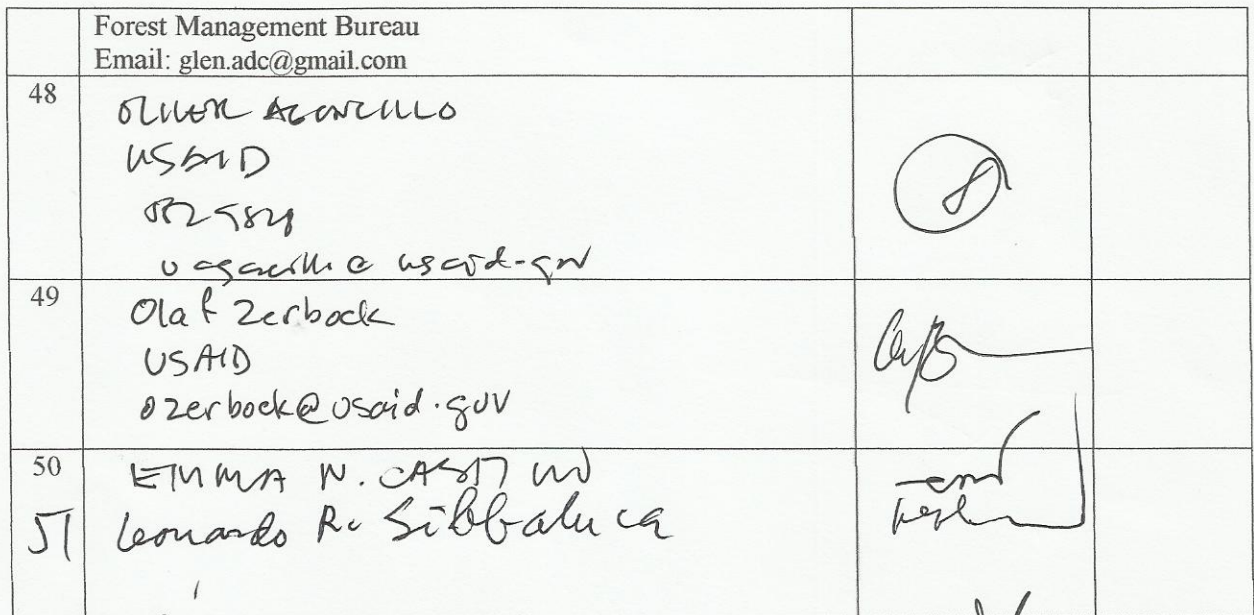 Forest Management Bureau
Email: glen.adc@gmail.com
48
OLIVER AGONCILLO
USAID
49
Olaf Zerbock
USAID
ozerbock@usaid.gov
50
EMMA N. CASTILLO
51
Leonardo R. Sibbaluca